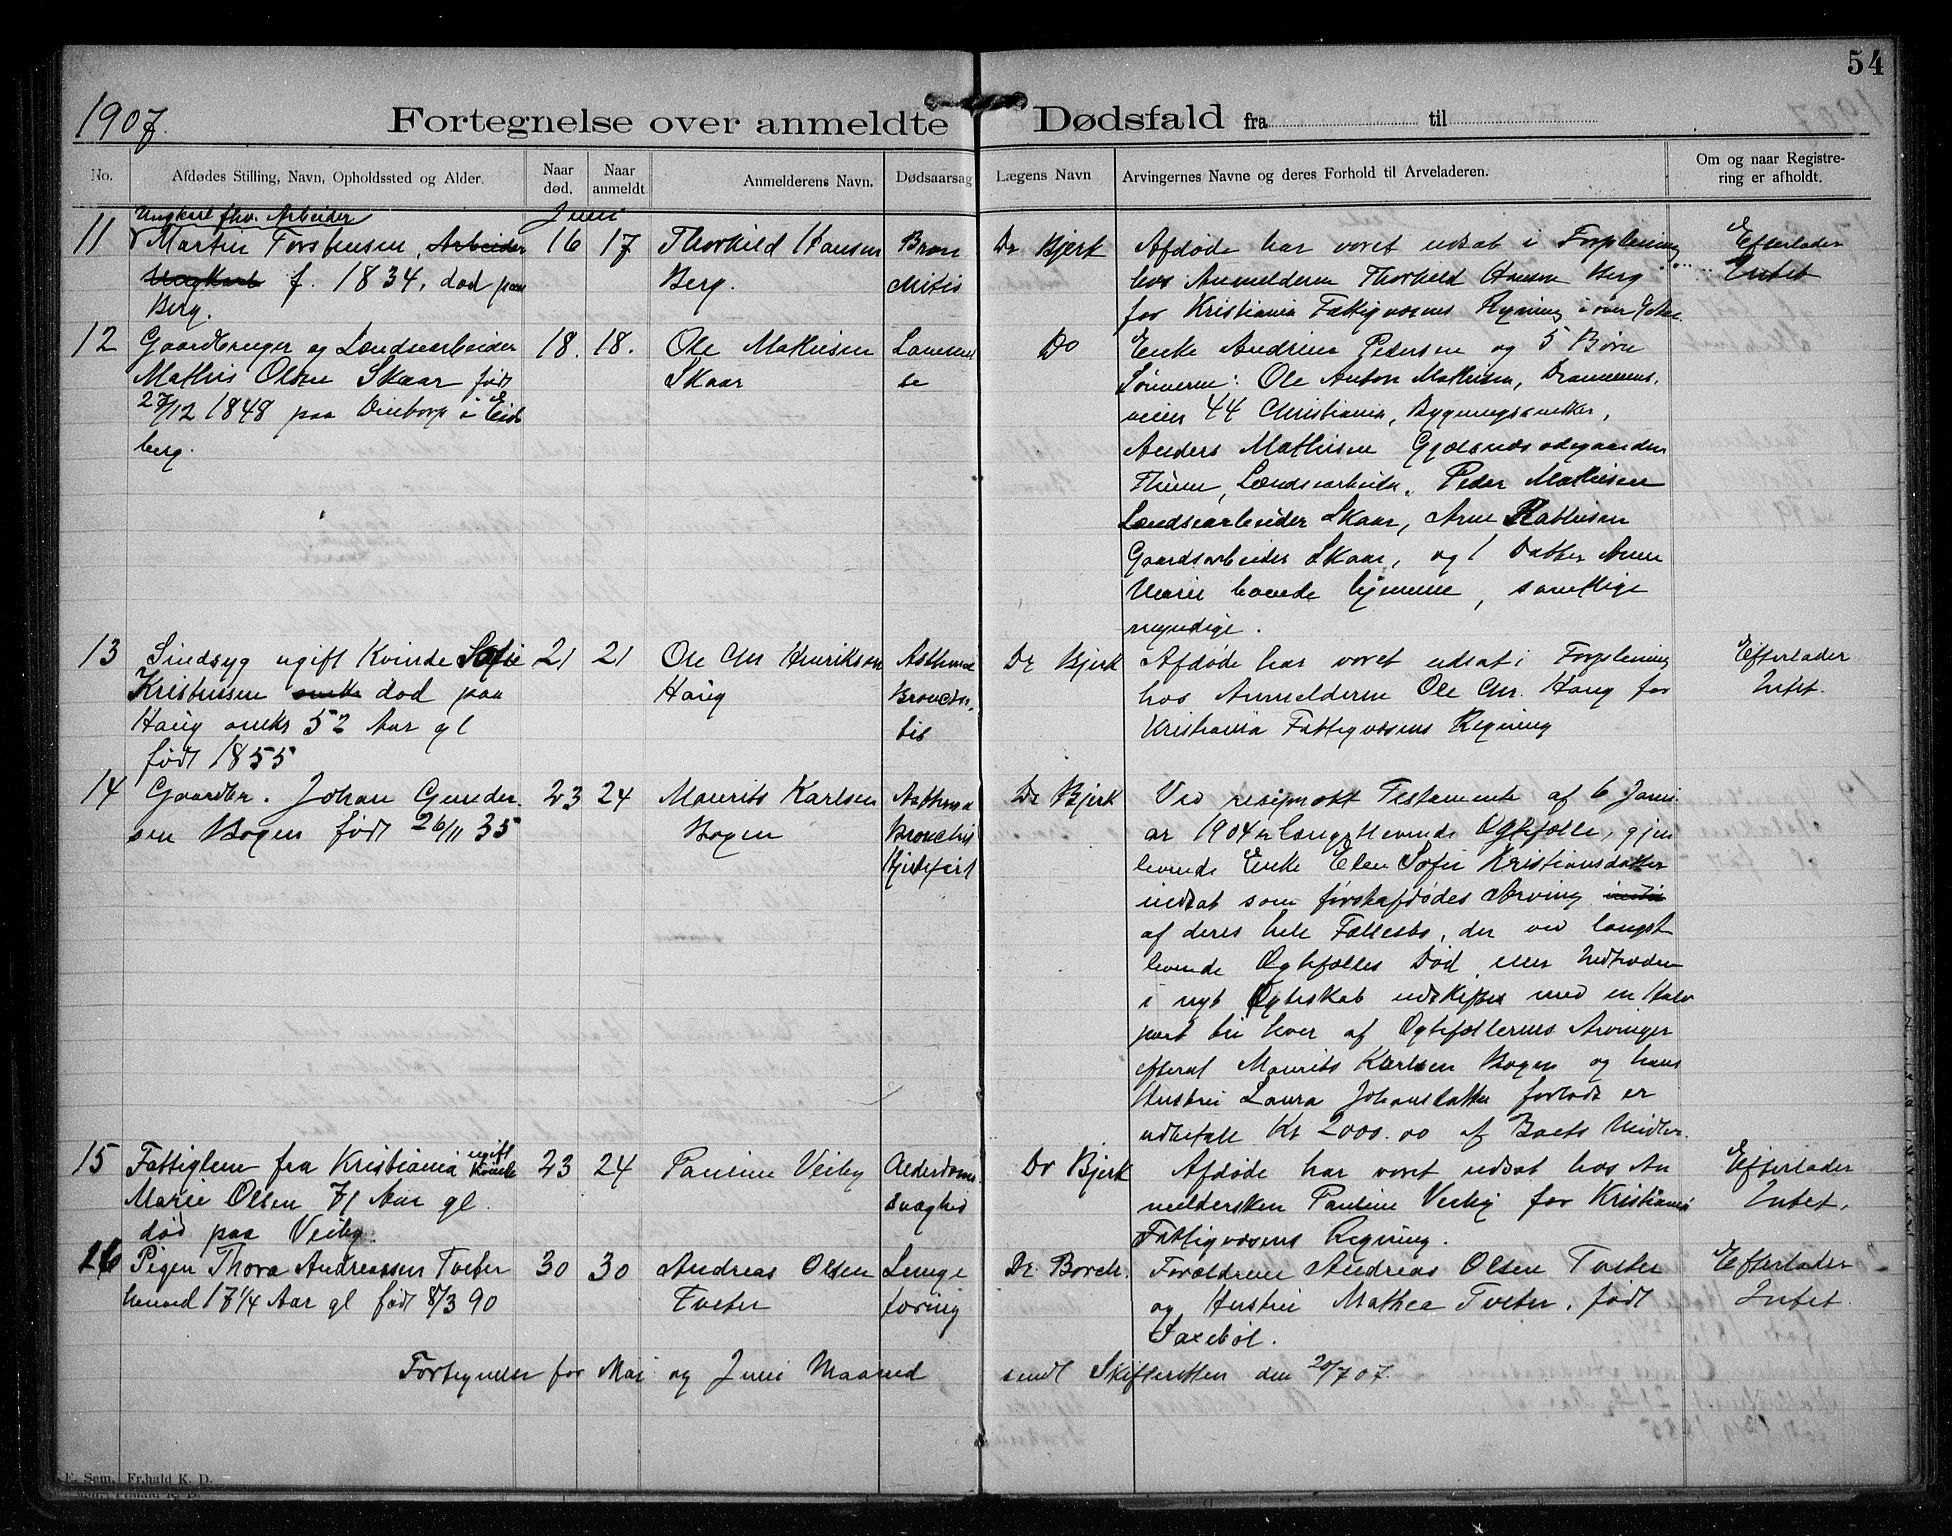 54
1907.
Fortegnelse over anmeldte Dødsfald fra til
No.
Afdødes Stilling, Navn, Opholdssted og Alder.
Naar død.
Naar anmeldt
Anmelderens Navn.
Dødsaarsag
Lægens Navn
Arvingernes Navne og deres Forhold til Arveladeren.
Om og naar Registre-
ring er afholdt.
Juni
11
Ungkarl fhv. Arbeider
Martin Torstensen, Arbeider
Ungkarl f. 1834, død paa
Berg.
16
17
Thorkild Hansen
Berg.
Bron
chitis
Dr Bjerk
Afdøde har voret udsat i Forpleining
hos Anmelderen Thorkild Hansen Berg
for Kristiania Fattigvæsens Regning
Efterlader
Intet
12
Gaardbruger og Landsearbeider
Mathis Olsen Skaar født
27/12 1848 paa i Eids
berg.
18.
18.
Ole Mathisen
Skaar
Lammel
se
Do
Enke Andrine Pedersen og 5 Børn
Sønnerne: Ole Anton Mathisen, Drammens.
veien 44 Christiania, Bygningssnedker,
Anders Mathisen Gjølsnesødegaarden
Lændsearbeider, Peder Mathisen
Lændsearbeider Skaar, Arne Mathisen
Gaardsarbeider Skaar, og 1 Datter Anne
Marie hjemme, samtlige
myndige.
13
Sindsyg ugift Kvinde Sofie
Kristensen død paa
Haug omkr 52 Aar gl
født 1855
21
21
Ole Chr Henriksen
Haug
Asthma
Bronchi
tis
Dr Bjerk
Afdøde har voret udsat i Forpleining
hos Anmelderen Ole Chr. Haug for
Kristiania Fattigvæsens Regning
Efterlader
Intet.
14
Gaardbr. Johan Gunder
sen Bogen født 26/11 35
23
24
Maurits Karlsen
Bogen
Asthma
Bronchis
Hjertefeil
Dr Bjerk
Ved resiprokt Testamente af 6 Janu
ar 1904 er længstlevende Ægtefælle, gjen
levende Enke Elen Sofie Kristiansdatter
indsat som førstafdødes Arving
af deres hele Fællesbo, der ved længst
levende Ægtefælles Død eller Indtræden
i nyt Ægteskab udskiftes med en Halv
part til hver af Ægtefællernes Arvinger
efterat Maurits Karlsen Bogen og hans
Hustru Laura Johansdatter forlods er
udbetalt Kr 2000.00 af Boets Midler.
15
Fattiglem fra Kristiania ugift Kvinde
Marie Olsen 71 Aar gl.
død paa Veiby.
23
24
Pauline Veiby
Alderdoms
svaghed
Dr Bjerk
Afdøde har voret udsat hos An
meldersken Pauline Veiby for Kristiania
Fattigvæsens Regning.
Efterlader
Intet.
16
Pigen Thora Andreassen Tveter
henved 17 1/4 Aar gl født 8/3 90
30
30
Andreas Olsen
Tveter
Lunge
tæring
Dr Borch.
Forældrene Andreas Olsen Tveter
og Hustru Mathea Tveter, født
Saxebøl.
Efterlader
Intet
Fortegnelse for Mai og Juni Maaned sendt Skifteretten den 20/7 07.
E. Sem, Fr.hald K. D.